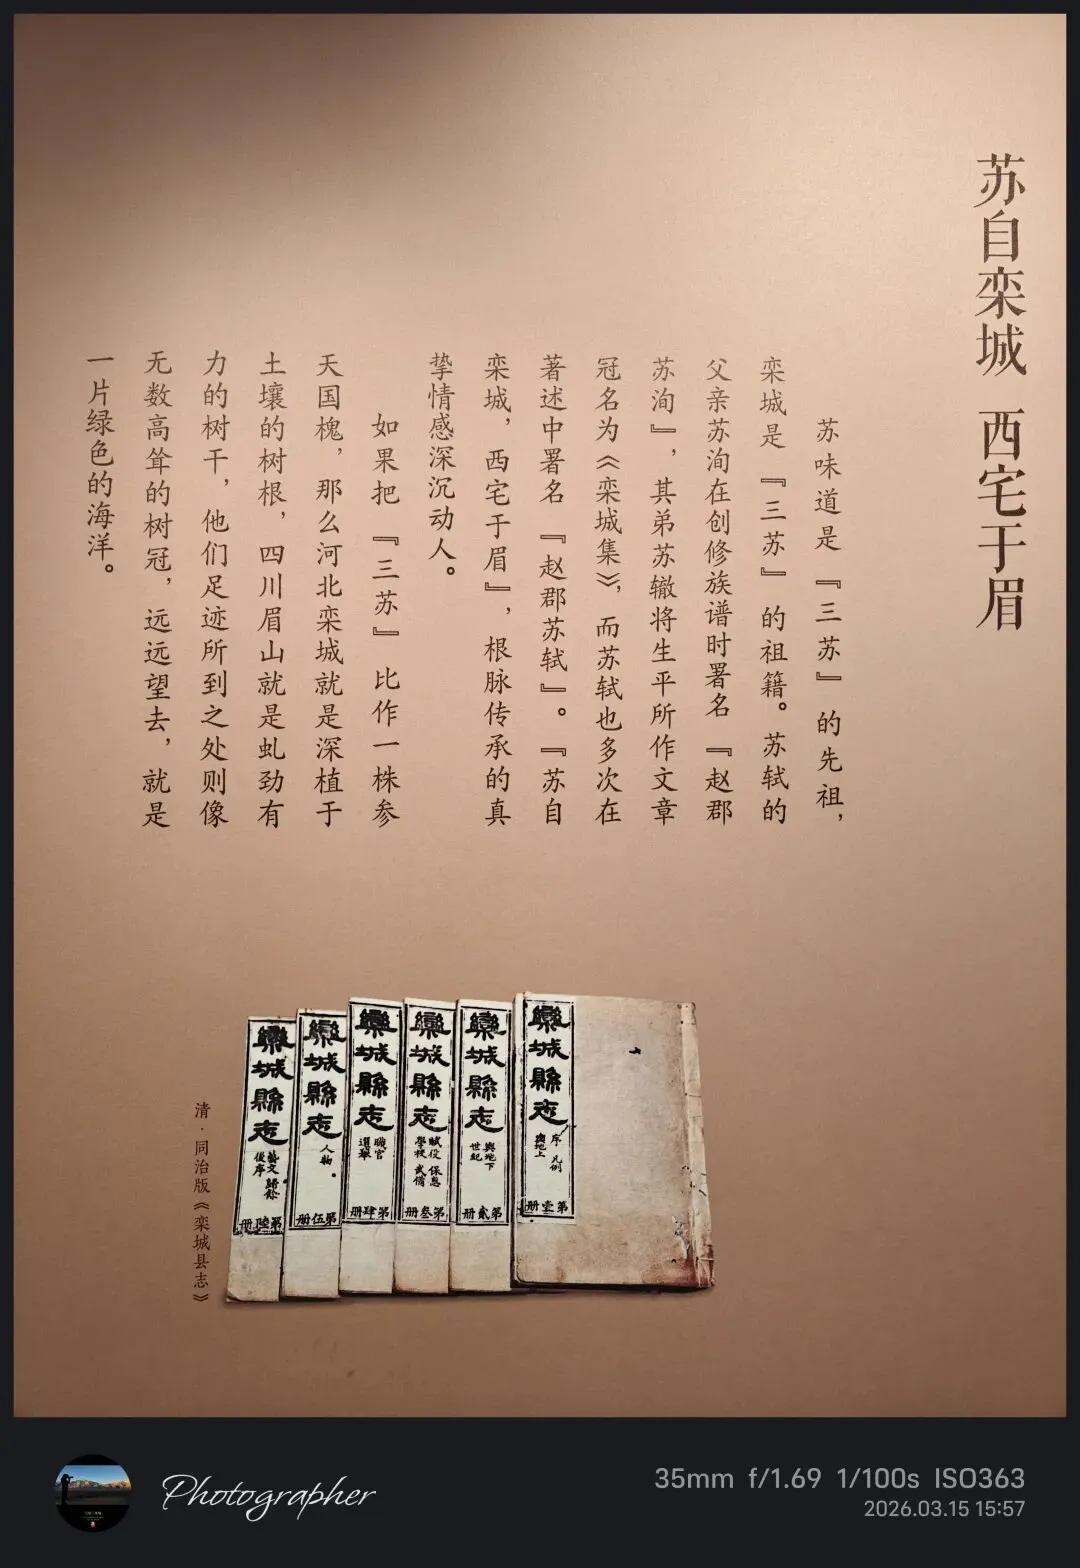 苏自栾城 西宅于眉
苏味道是『三苏』的先祖，
栾城是『三苏』的祖籍。苏轼的
父亲苏洵在创修族谱时署名『赵郡
苏洵』，其弟苏辙将生平所作文章
冠名为《栾城集》，而苏轼也多次在
著述中署名『赵郡苏轼』。『苏自
栾城，西宅于眉』，根脉传承的真
挚情感深沉动人。
如果把『三苏』比作一株参
天国槐，那么河北栾城就是深植于
土壤的树根，四川眉山就是虬劲有
力的树干，他们足迹所到之处则像
无数高耸的树冠，远远望去，就是
一片绿色的海洋。
欒城縣志
序 凡例
輿地上
第壹册
欒城縣志
輿地下
世紀
第貳册
欒城縣志
賦役 保息
學校 武備
第叁册
欒城縣志
職官
選舉
第肆册
欒城縣志
人物
第伍册
欒城縣志
後序
第陸册
清·同治版《栾城县志》
Photographer
35mm f/1.69 1/100s ISO363
2026.03.15 15:57